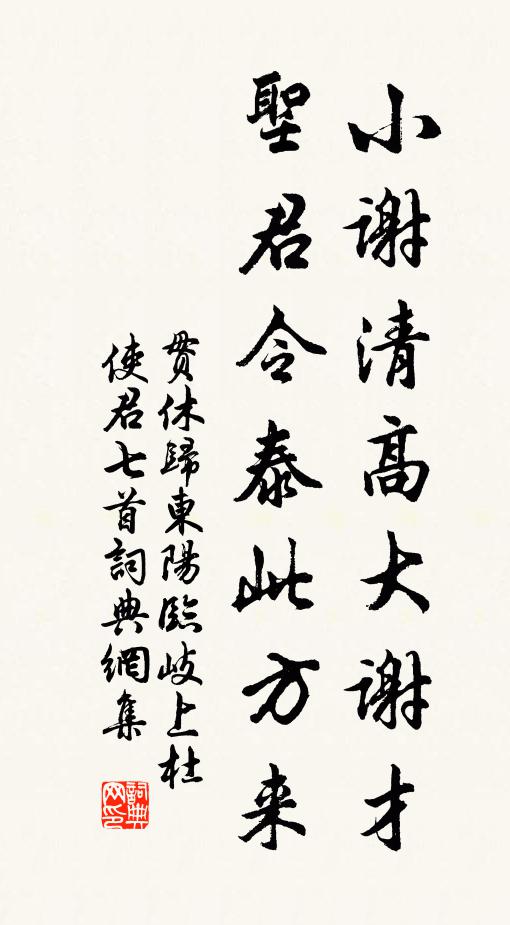 小谢清高大谢才
聖君令泰此方来
贯休歸東陽臨岐上杜
使君七首詞典網集
詞典
网印